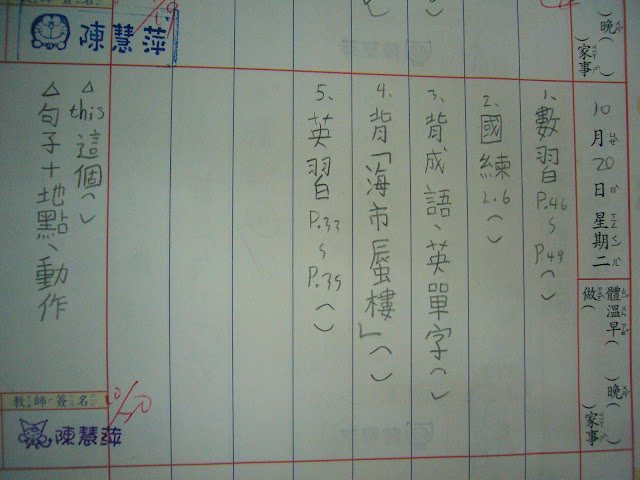 晚
家事
10月20日星期二
體溫早( ) 晚( )
做( ) 家事
1、數習P.46~P.49( )
2、國練L.6( )
3、背成語、英單字( )
4、背「海市蜃樓」( )
5、英習P.33~P.35( )
△this這個( )
△句子+地點、動作
陳慧萍
教師簽名
10/20
陳慧萍